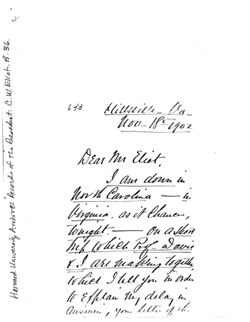 Harvard University Archives Records of the President. C.W. Eliot. B. 36.
643
Hillsville - Va -
Nov. 18th 1902
Dear Mr Eliot.
I am down in
North Carolina — in
Virginia, as it chances,
tonight — on a short
trip which Prof. Davis
& I are making together,
which I tell you in order
to explain my delay in
answering your letter of the